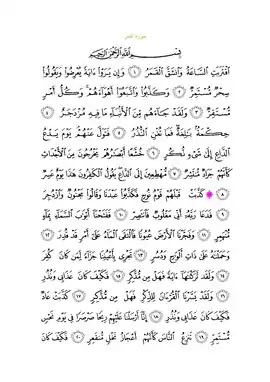 سورة القمر
بِسْمِ اللَّهِ الرَّحْمَٰنِ الرَّحِيمِ
اقْتَرَبَتِ السَّاعَةُ وَانشَقَّ الْقَمَرُ ۝١ وَإِن يَرَوْا ءَايَةً يُعْرِضُوا وَيَقُولُوا
سِحْرٌ مُّسْتَمِرٌّ ۝٢ وَكَذَّبُوا وَاتَّبَعُوا أَهْوَاءَهُمْ ۚ وَكُلُّ أَمْرٍ
مُّسْتَقِرٌّ ۝٣ وَلَقَدْ جَاءَهُم مِّنَ الْأَنبَاءِ مَا فِيهِ مُزْدَجَرٌ ۝٤
حِكْمَةٌ بَالِغَةٌ ۖ فَمَا تُغْنِ النُّذُرُ ۝٥ فَتَوَلَّ عَنْهُمْ ۘ يَوْمَ يَدْعُ
الدَّاعِ إِلَىٰ شَيْءٍ نُّكُرٍ ۝٦ خُشَّعًا أَبْصَارُهُمْ يَخْرُجُونَ مِنَ الْأَجْدَاثِ
كَأَنَّهُمْ جَرَادٌ مُّنتَشِرٌ ۝٧ مُّهْطِعِينَ إِلَى الدَّاعِ ۖ يَقُولُ الْكَافِرُونَ هَٰذَا يَوْمٌ عَسِرٌ
۝٨ كَذَّبَتْ قَبْلَهُمْ قَوْمُ نُوحٍ فَكَذَّبُوا عَبْدَنَا وَقَالُوا مَجْنُونٌ وَازْدُجِرَ
۝٩ فَدَعَا رَبَّهُ أَنِّي مَغْلُوبٌ فَانتَصِرْ ۝١٠ فَفَتَحْنَا أَبْوَابَ السَّمَاءِ بِمَاءٍ
مُّنْهَمِرٍ ۝١١ وَفَجَّرْنَا الْأَرْضَ عُيُونًا فَالْتَقَى الْمَاءُ عَلَىٰ أَمْرٍ قَدْ قُدِرَ ۝١٢
وَحَمَلْنَاهُ عَلَىٰ ذَاتِ أَلْوَاحٍ وَدُسُرٍ ۝١٣ تَجْرِي بِأَعْيُنِنَا جَزَاءً لِّمَن كَانَ كُفِرَ
۝١٤ وَلَقَد تَّرَكْنَاهَا ءَايَةً فَهَلْ مِن مُّدَّكِرٍ ۝١٥ فَكَيْفَ كَانَ عَذَابِي وَنُذُرِ
۝١٦ وَلَقَدْ يَسَّرْنَا الْقُرْءَانَ لِلذِّكْرِ فَهَلْ مِن مُّدَّكِرٍ ۝١٧ كَذَّبَتْ عَادٌ
فَكَيْفَ كَانَ عَذَابِي وَنُذُرِ ۝١٨ إِنَّا أَرْسَلْنَا عَلَيْهِمْ رِيحًا صَرْصَرًا فِي يَوْمِ نَحْسٍ
مُّسْتَمِرٍّ ۝١٩ تَنزِعُ النَّاسَ كَأَنَّهُمْ أَعْجَازُ نَخْلٍ مُّنقَعِرٍ ۝٢٠ فَكَيْفَ كَانَ